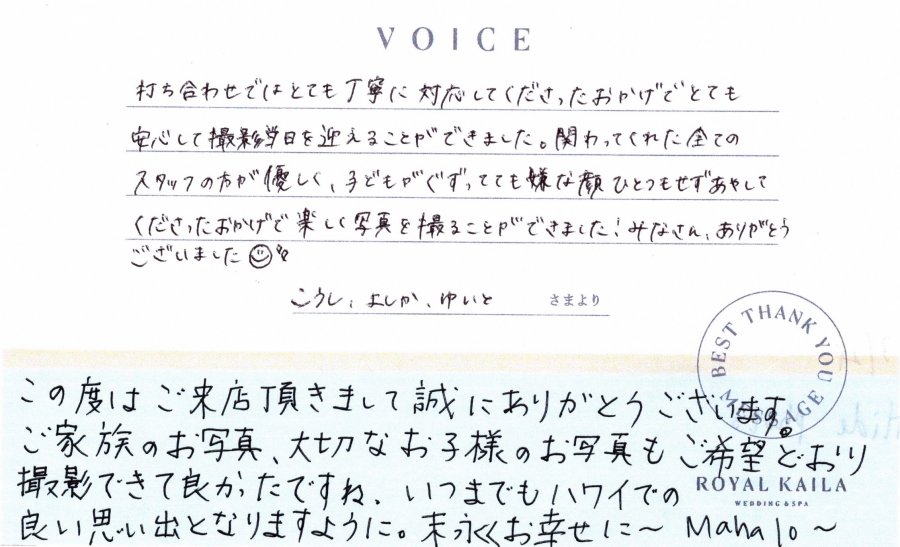 VOICE
打ち合わせではとても丁寧に対応してくださったおかげでとても
安心して撮影当日を迎えることができました。関わってくれた全ての
スタッフの方が優しく、子どもがぐずってても嫌な顔ひとつもせずあやして
くださったおかげで楽しく写真を撮ることができました！みなさん、ありがとう
ございました
こうし、よしか、ゆいと さまより
BEST THANK YOU MESSAGE
ROYAL KAILA
WEDDING & SPA
この度はご来店頂きまして誠にありがとうございます。
ご家族のお写真、大切なお子様のお写真もご希望どおり
撮影できて良かったですね、いつまでもハワイでの
良い思い出となりますように。末永くお幸せに〜 Mahalo〜